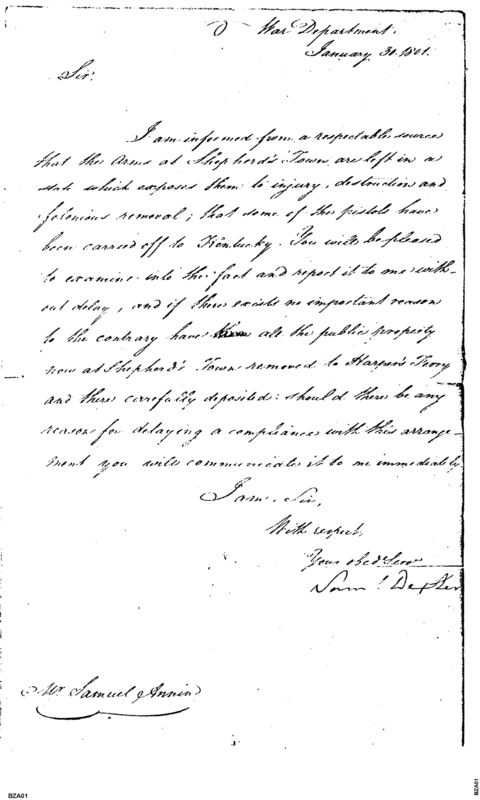 War Department.
January 31. 1801.
Sir.
I am informed from a respectable source
that the Arms at Shepherd's Town, are left in a
state which exposes them to injury, destruction and
felonious removal; that some of the pistols have
been carried off to Kentucky. You will be pleased
to examine into the fact and report it to me with-
out delay, and if there exists no important reason
to the contrary have them all the public property
now at Shepherd's Town removed to Harper's Ferry
and there carefully deposited: should there be any
reason for delaying a compliance with this arrange-
ment you will communicate it to me immediately.
I am, Sir,
With respect,
Your obed Servt
Saml. Dexter
Mr. Samuel Annin
BZA01
BZA01